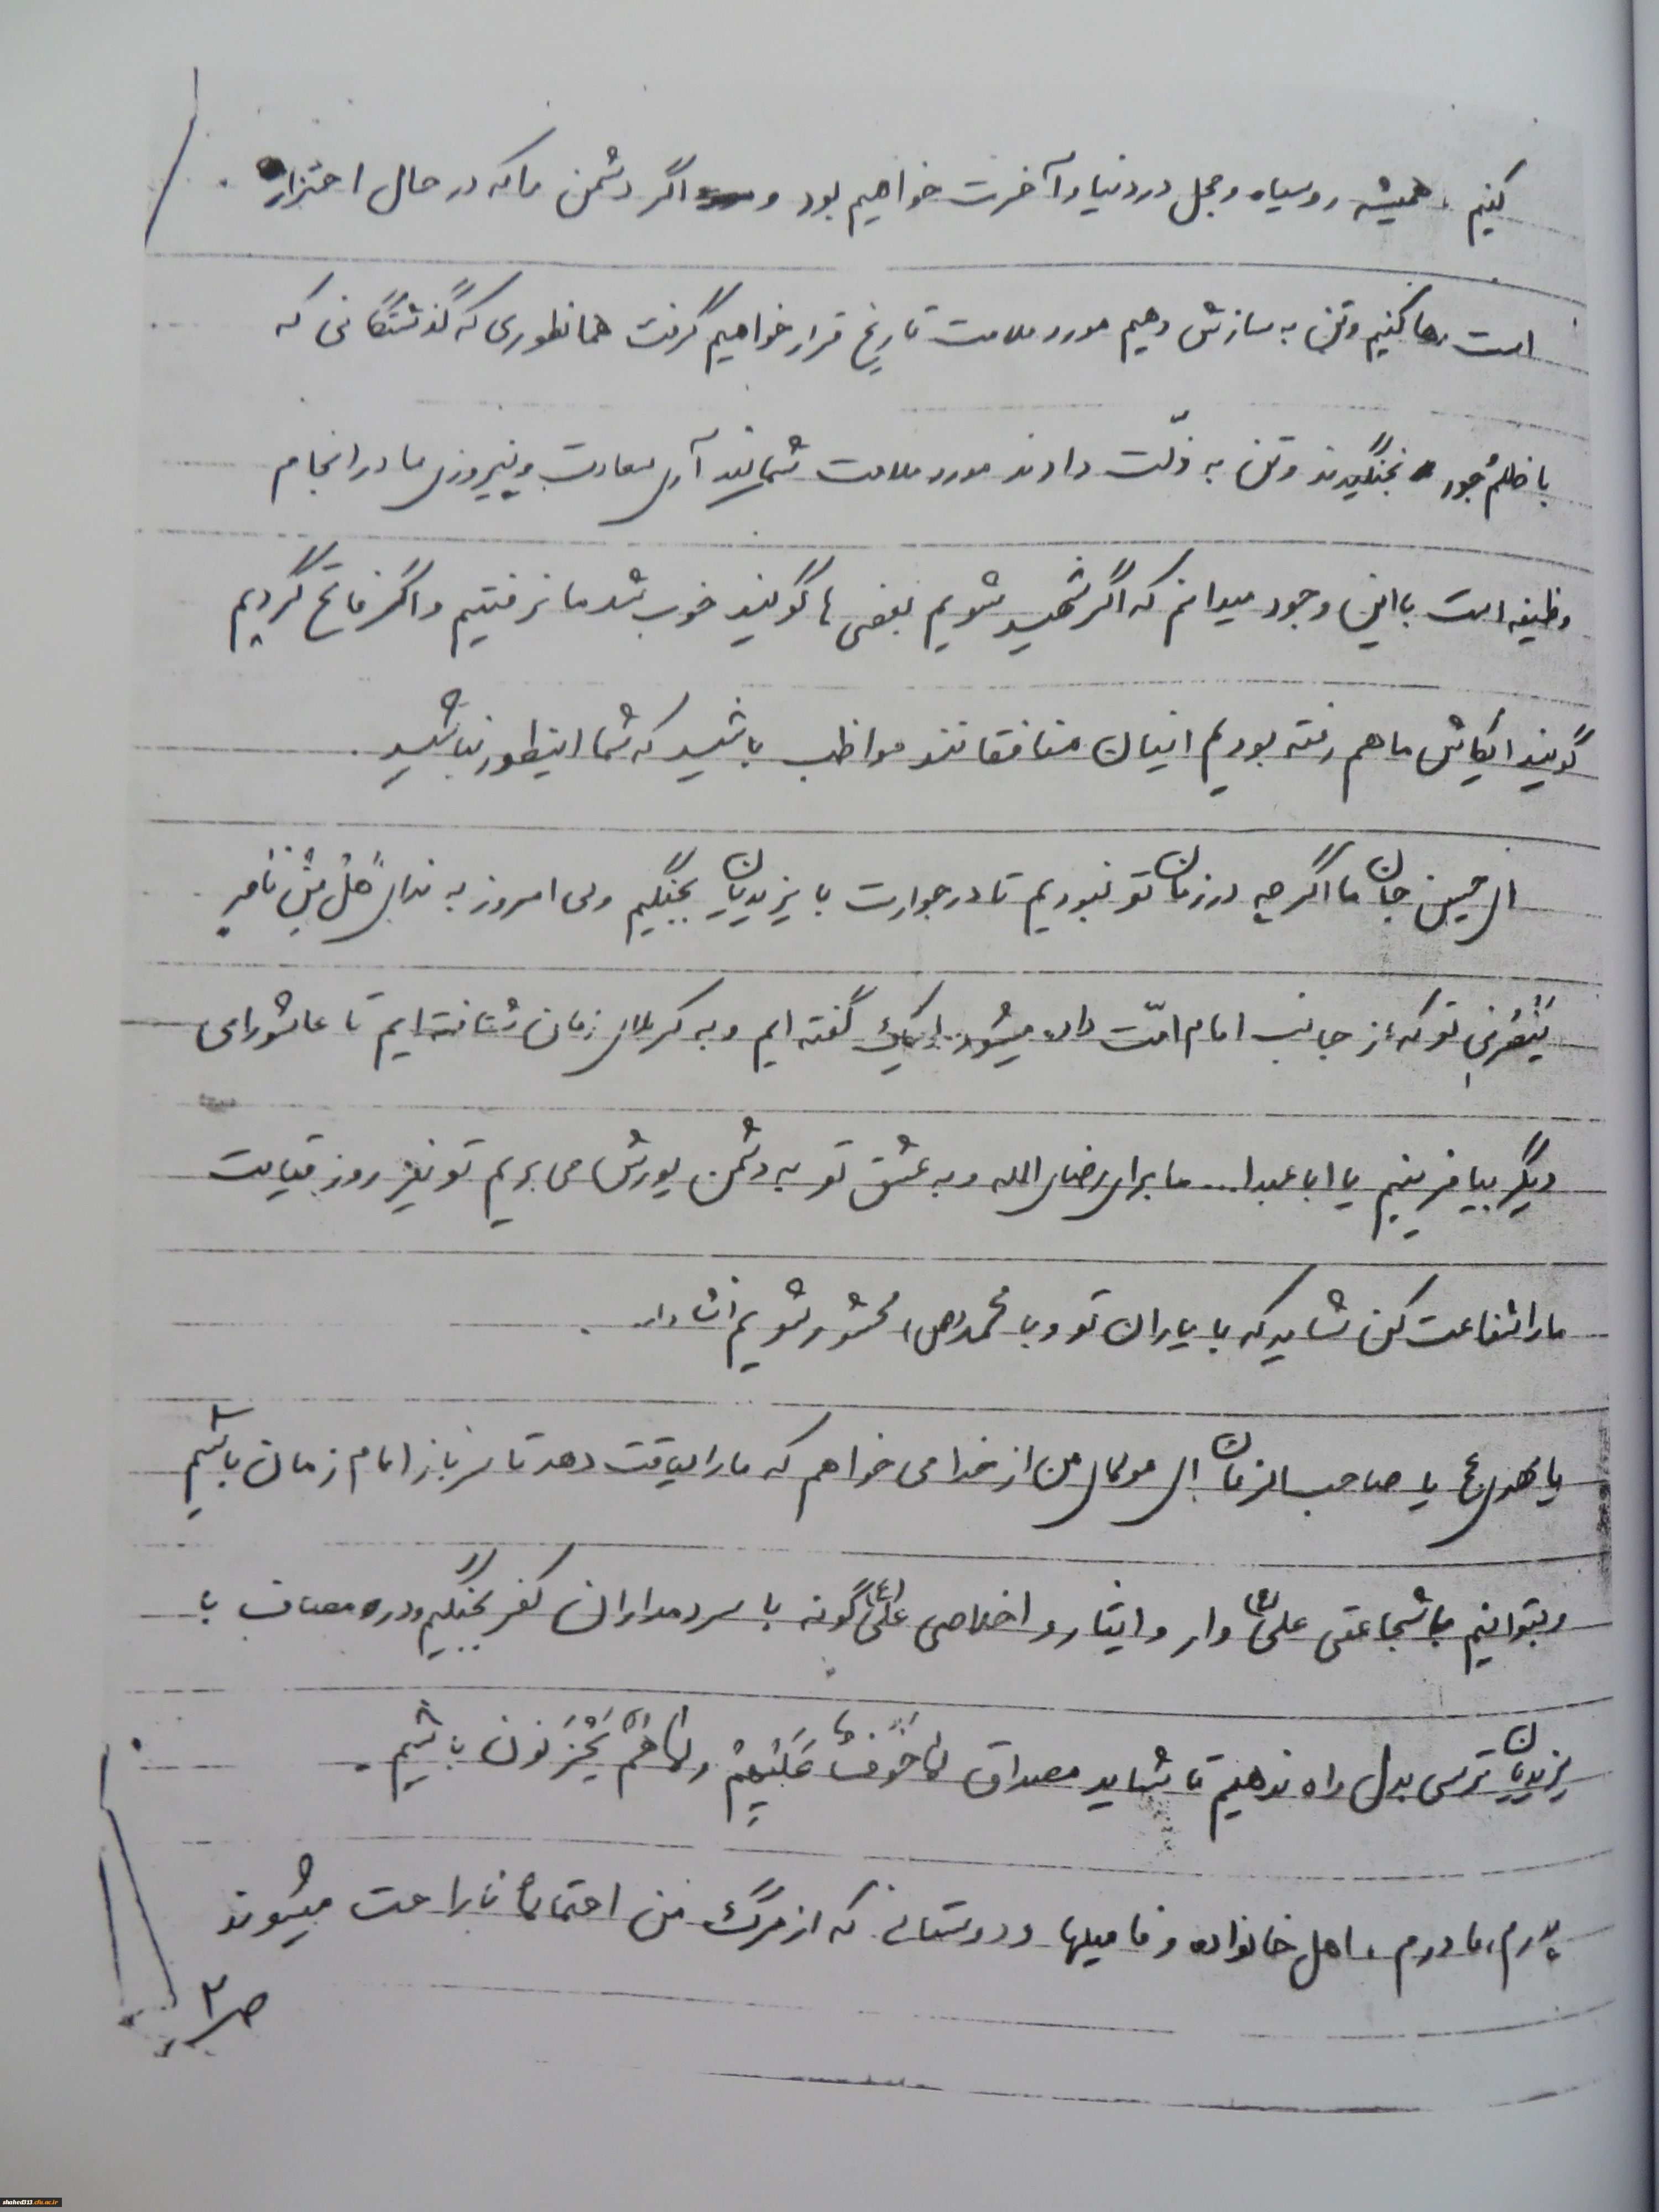 کنیم، همیشه روسیاه و خجل در دنیا و آخرت خواهیم بود و اگر دشمن ما که در حال احتزار
است رها کنیم و تن به سازش دهیم مورد ملامت تاریخ قرار خواهیم گرفت همانطوری که گذشتگانی که
با ظلم جور نجنگیدند و تن به ذلّت دادند مورد ملامت شمایند آری سعادت و پیروزی ما در انجام
وظیفه است با این وجود میدانم که اگر شهید شویم بعضی ها گویند خوب شد ما نرفتیم و اگر فاتح گردیم
گویند ایکاش ما هم رفته بودیم اینان منافقانند مواظب باشید که شما اینطور نباشید.
ای حسین جان ما اگر چه در زمان تو نبودیم تا در جوارت با یزیدیان بجنگیم ولی امروز به ندای هَل مِن ناصرٍ
یَنصُرنی تو که از جانب امام امّت داده میشود لبیک گفته ایم و به کربلای زمان شتافته ایم تا عاشورای
دیگر بیافرینیم یا ابا عبدا... ما برای رضای الله و به عشق تو به دشمن یورش می بریم تو نیز روز قیامت
ما را شفاعت کن شاید که با یاران تو و با محمد(ص) محشور شویم انشاءا...
یا مهدی عج یا صاحب الزمان ای مولای من از خدا می خواهم که ما را لیاقت دهد تا سرباز امام زمان باشیم
و بتوانیم با شجاعتی علی(ع) وار و ایثار و اخلاصی علی(ع) گونه با سردمداران کفر بجنگیم و در مصاف با
یزیدیان ترسی بدل راه ندهیم تا شاید مصداق لا خَوفٌ عَلَیْهِمْ وَ لا هُمْ یَحْزَنون باشیم.
پدرم، مادرم، اهل خانواده و فامیلها و دوستانی که از مرگ من احتمالاً ناراحت میشوند
ص ۲
shahed313.cfu.ac.ir